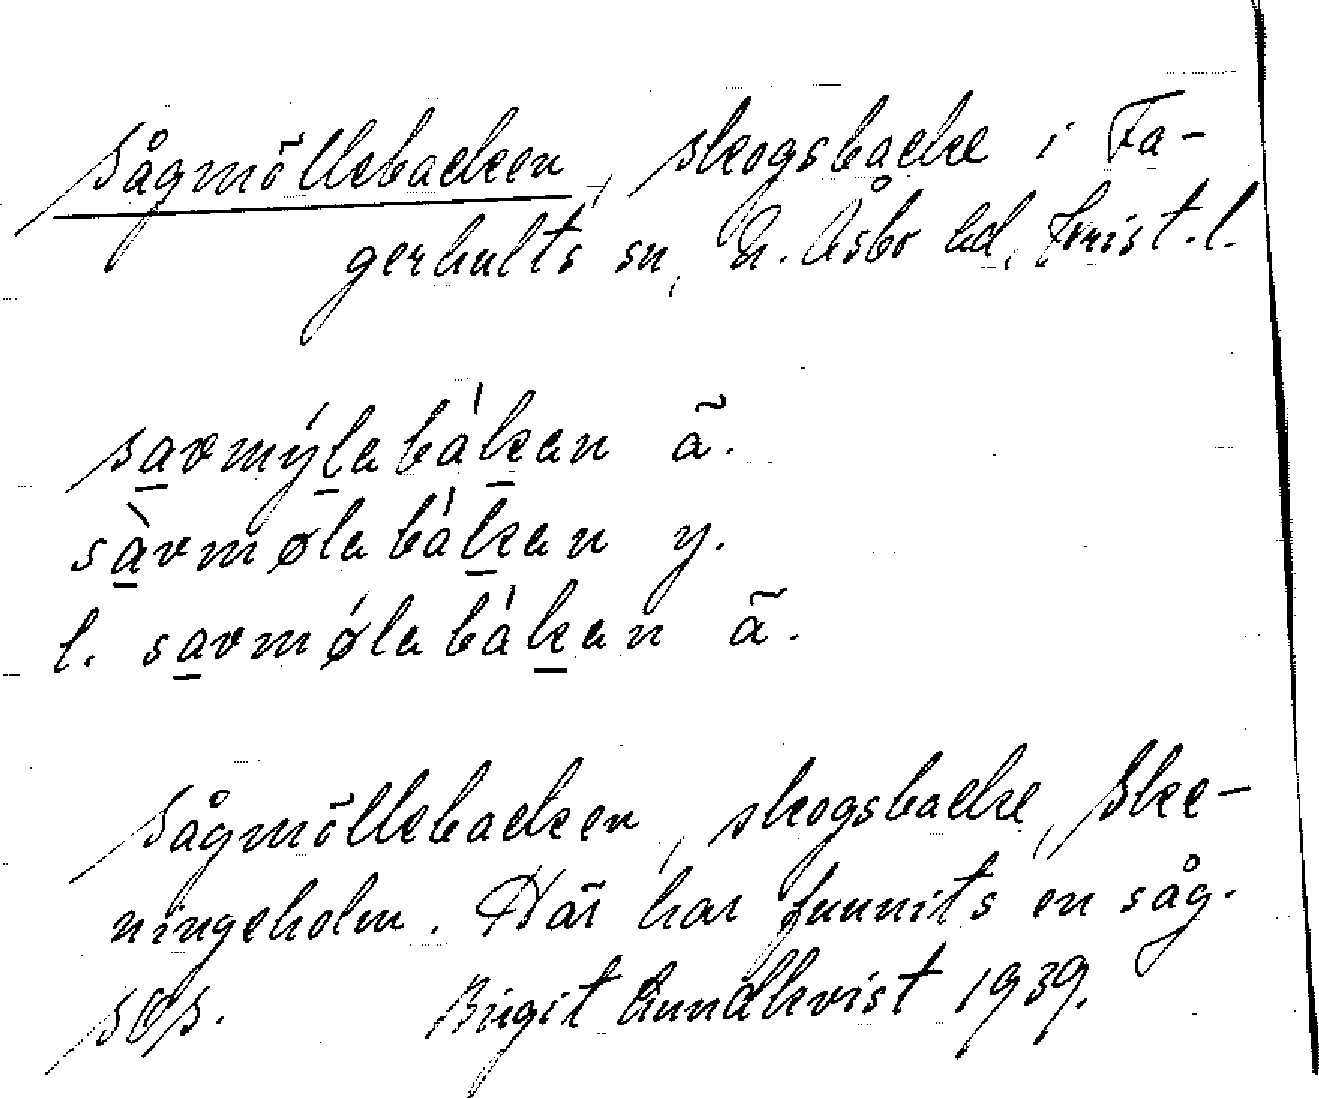 Sågmöllebacken, skogsbacke i Fa-
gerhults sn, N. Åsbo hd, Krist. l.
savmýlabàkan ä.
sàvmølabàkan y.
l. savmǿlabàkan ä.
Sågmöllebacken, skogsbacke, Ske-
ningeholm. Här har funnits en såg.
sOs. Birgit Lundkvist 1939.